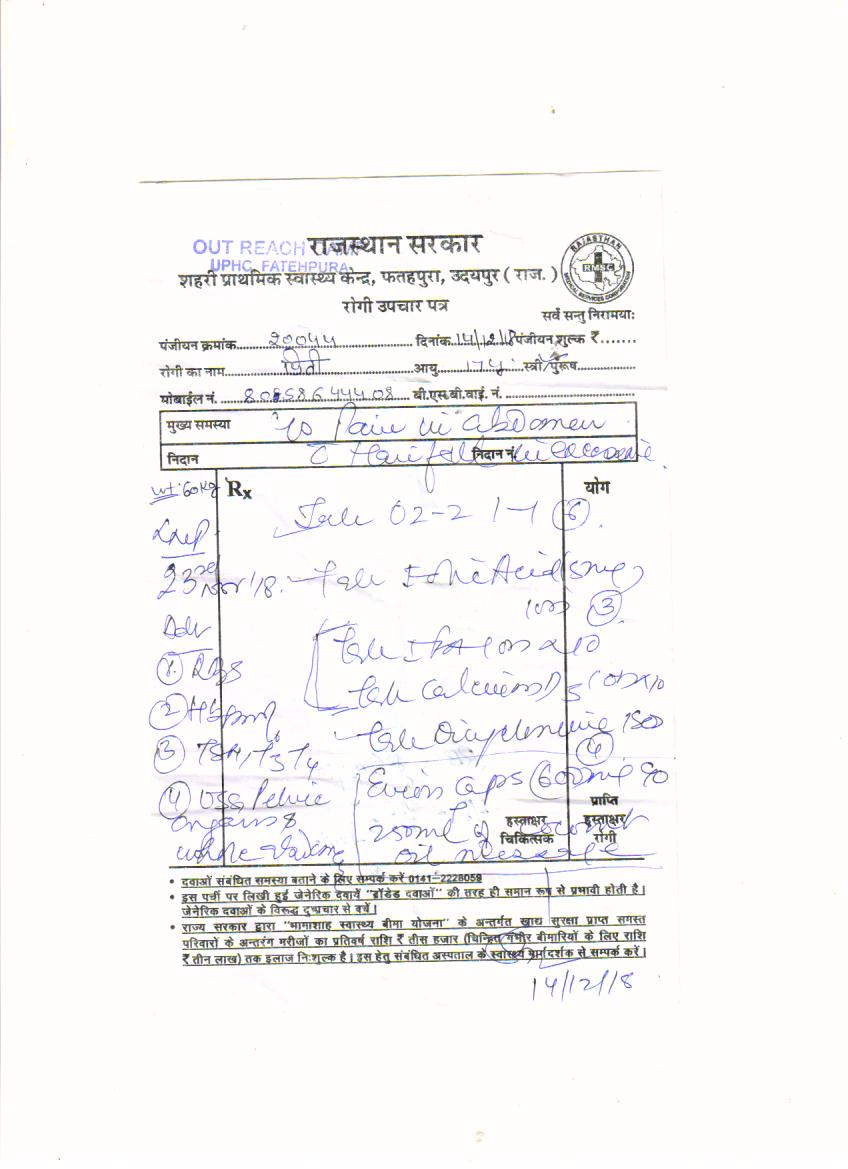 OUT REACH
राजस्थान सरकार
UPHC, FATEHPURA
शहरी प्राथमिक स्वास्थ्य केन्द्र, फतहपुरा, उदयपुर ( राज. )
RAJASTHAN
RMSC
MEDICAL SERVICES CORPORATION
रोगी उपचार पत्र
सर्वे सन्तु निरामयाः
पंजीयन क्रमांक 20044 दिनांक 14/12/18 पंजीयन शुल्क ₹.......
रोगी का नाम आयु 17 y स्त्री/पुरूष
मोबाईल नं. बी.एस.बी.वाई. नं.
मुख्य समस्या Pain in abdomen
निदान निदान नं.
wt. 60 kg Rx योग
Tab 02-2 1-1 (6)
LMP
23rd Nov '18. Tab Folic Acid 5mg
1 OD (3)
Adv
(1) RBS Tab IFA 1 OD x 10
Tab Calcium D3 1 OD x 10
(2)
(3) TSH, T3 T4 Tab Dicyclomine 1 SOS
(4)
(4) USG Pelvic Evion Caps 600mg
organs & प्राप्ति
हस्ताक्षर हस्ताक्षर
250ml of coconut
चिकित्सक रोगी
whole oil message
• दवाओं संबंधित समस्या बताने के लिए सम्पर्क करें 0141-2228059
• इस पर्ची पर लिखी हुई जेनेरिक दवायें "ब्रांडेड दवाओं" की तरह ही समान रूप से प्रभावी होती है।
जेनेरिक दवाओं के विरूद्ध दुष्प्रचार से बचें।
• राज्य सरकार द्वारा "भामाशाह स्वास्थ्य बीमा योजना" के अन्तर्गत खाद्य सुरक्षा प्राप्त समस्त
परिवारों के अन्तरंग मरीजों का प्रतिवर्ष राशि ₹ तीस हजार (चिन्हित गंभीर बीमारियों के लिए राशि
₹ तीन लाख) तक इलाज निःशुल्क है। इस हेतु संबंधित अस्पताल के स्वास्थ्य मार्गदर्शक से सम्पर्क करें।
14/12/18